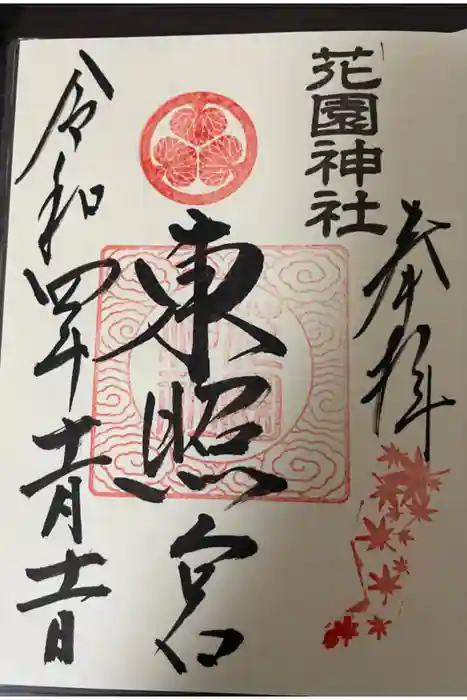 奉拝
花園神社
東照宮
令和四年十一月十一日